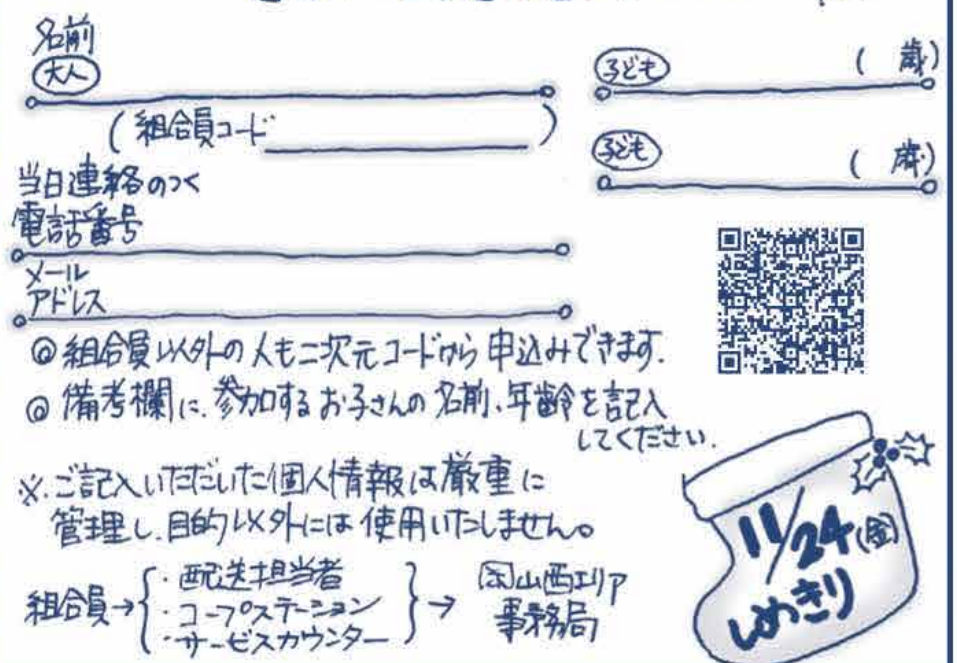 名前
大人
(組合員コード )
子ども ( 歳)
子ども ( 歳)
当日連絡のつく
電話番号
メール
アドレス
◎組合員以外の人も二次元コードから申込みできます.
◎備考欄に、参加するお子さんの名前、年齢を記入
してください.
※.ご記入いただいた個人情報は厳重に
管理し、目的以外には使用いたしません。
組合員→{ ・配送担当者
・コープステーション
・サービスカウンター } → 岡山西エリア
事務局
11/24(金)
しめきり